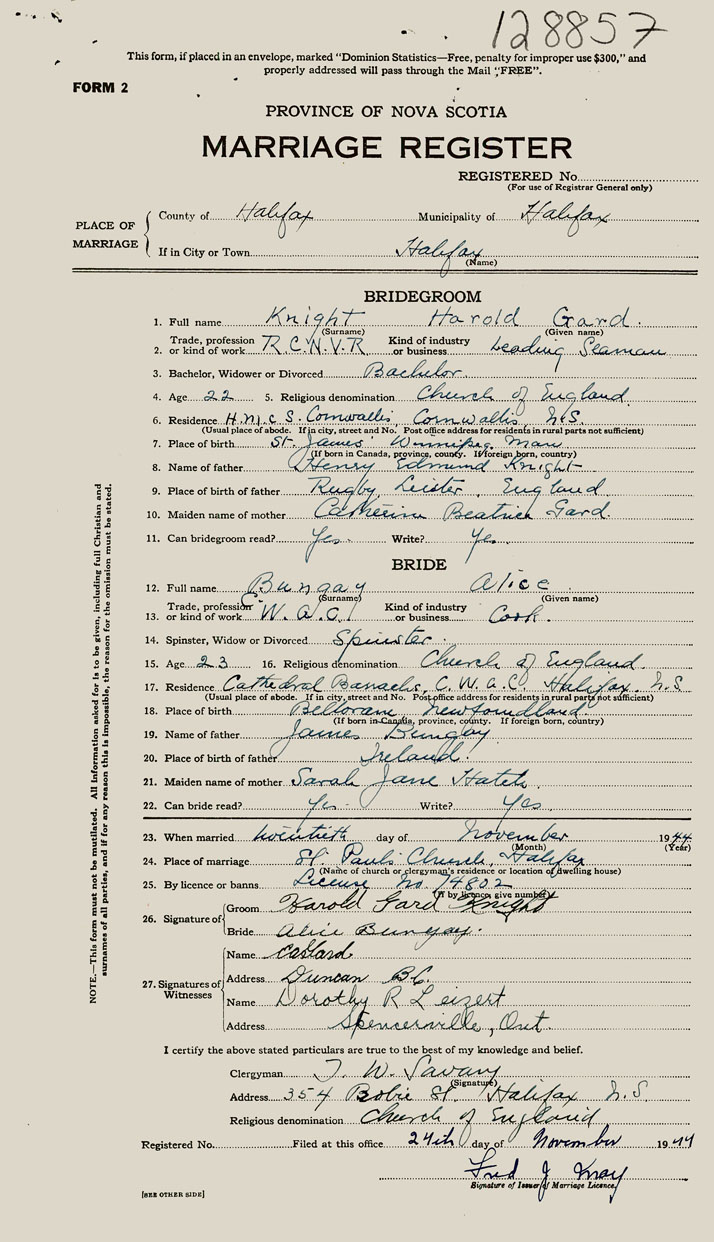 128857
This form, if placed in an envelope, marked "Dominion Statistics—Free, penalty for improper use $300," and
properly addressed will pass through the Mail "FREE".
FORM 2
PROVINCE OF NOVA SCOTIA
MARRIAGE REGISTER
REGISTERED No.
(For use of Registrar General only)
PLACE OF MARRIAGE
County of Halifax Municipality of Halifax
If in City or Town Halifax
(Name)
BRIDEGROOM
1. Full name Knight Harold Gard.
(Surname) (Given name)
2. Trade, profession or kind of work R.C.N.V.R Kind of industry or business Leading Seaman
3. Bachelor, Widower or Divorced Bachelor
4. Age 22 5. Religious denomination Church of England
6. Residence H.M.C.S. Cornwallis, Cornwallis N.S.
(Usual place of abode. If in city, street and No. Post office address for residents in rural parts not sufficient)
7. Place of birth St. James' Winnipeg Man
(If born in Canada, province, county. If foreign born, country)
8. Name of father Henry Edmund Knight
9. Place of birth of father Rugby, Leister, England
10. Maiden name of mother Catherine Beatrice Gard.
11. Can bridegroom read? Yes. Write? Yes.
BRIDE
12. Full name Bungay Alice.
(Surname) (Given name)
13. Trade, profession or kind of work C.W.A.C. Kind of industry or business Cook.
14. Spinster, Widow or Divorced Spinster.
15. Age 23 16. Religious denomination Church of England.
17. Residence Cathedral Barracks, C.W.A.C. Halifax. N.S
(Usual place of abode. If in city, street and No. Post office address for residents in rural parts not sufficient)
18. Place of birth Belloram Newfoundland.
(If born in Canada, province, county. If foreign born, country)
19. Name of father James Bungay
20. Place of birth of father Ireland.
21. Maiden name of mother Sarah Jane Hatch.
22. Can bride read? Yes. Write? Yes.
23. When married twentieth day of November 1944
(Month) (Year)
24. Place of marriage St. Paul's Church, Halifax
(Name of church or clergyman's residence or location of dwelling house)
25. By licence or banns License No 74802
(If by licence, give number)
26. Signature of Groom Harold Gard Knight
Bride Alice Bungay.
27. Signatures of Witnesses
Name
Address Duncan B.C.
Name Dorothy R Leizert
Address Spencerville, Ont.
I certify the above stated particulars are true to the best of my knowledge and belief.
Clergyman T. W. Savary
(Signature)
Address 354 Robie St. Halifax N.S.
Religious denomination Church of England
Registered No. Filed at this office 24th day of November 1944
Fred J
Signature of Issuer of Marriage Licence.
[SEE OTHER SIDE]
NOTE.—This form must not be mutilated. All Information asked for is to be given, including full Christian and
surnames of all parties, and if for any reason this is impossible, the reason for the omission must be stated.